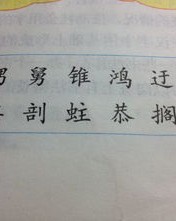 舅 锥 鸿 迂
剖 蛀 恭 搁